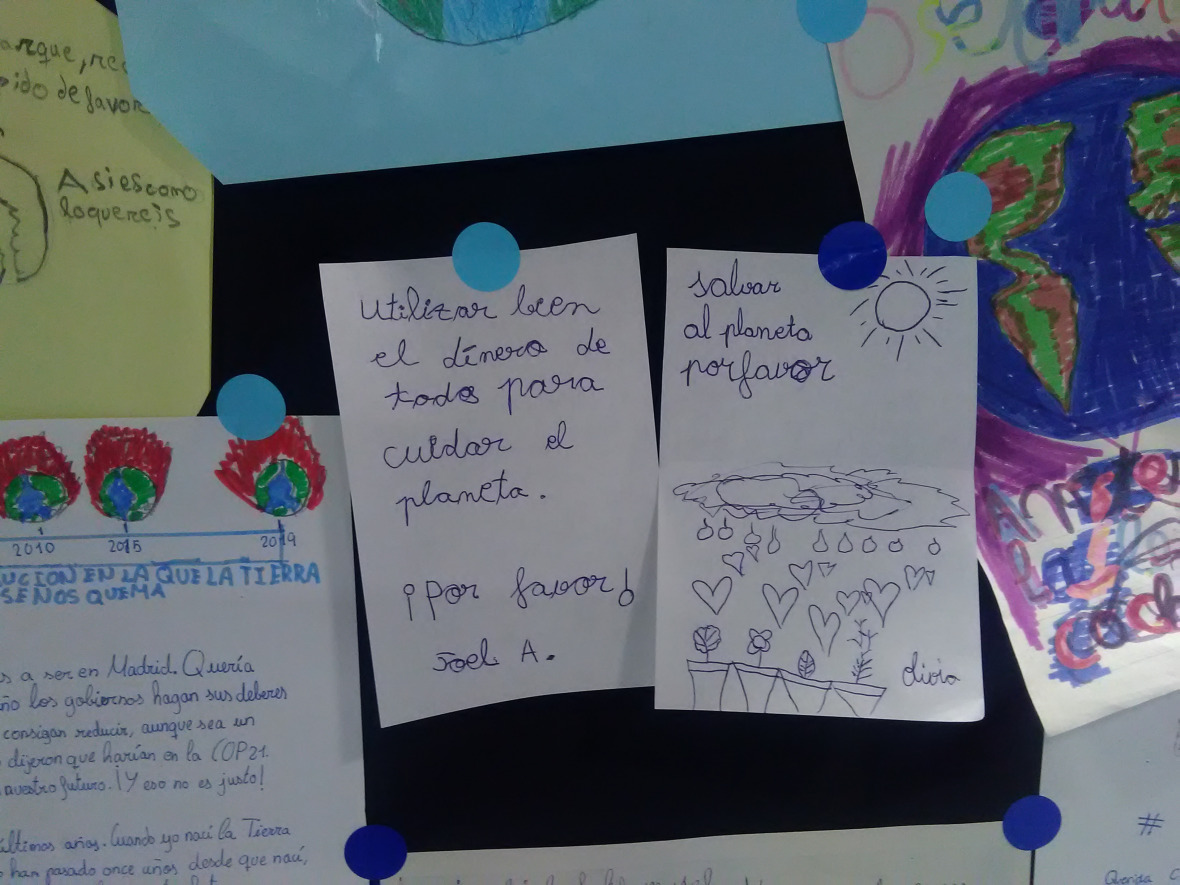 arque, rec
pido de favor
Asi es como
lo quereis
Utilizar bien
el dinero de
todos para
cuidar el
planeta.
¡Por favor!
Joel A.
salvar
al planeta
por favor
olivia
2010 2015 2019
UCION EN LA QUE LA TIERRA
SE NOS QUEMA
s a ser en Madrid. Quería
ño los gobiernos hagan sus deberes
consigan reducir, aunque sea un
dijeron que harían en la COP21.
nuestro futuro. ¡Y eso no es justo!
últimos años. Cuando yo nací la Tierra
han pasado once años desde que nací,
#
Querida C